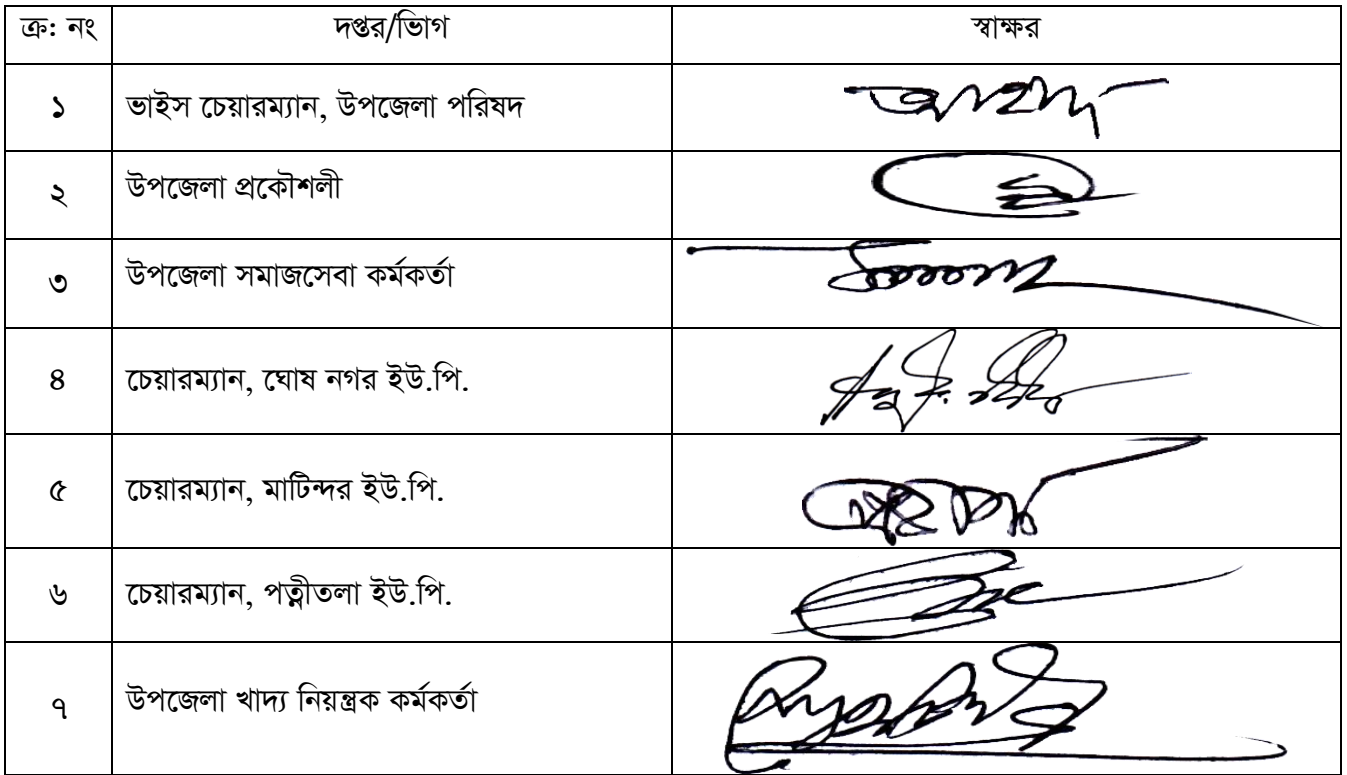 ক্র: নং দপ্তর/ভিাগ স্বাক্ষর
১ ভাইস চেয়ারম্যান, উপজেলা পরিষদ
২ উপজেলা প্রকৌশলী
৩ উপজেলা সমাজসেবা কর্মকর্তা
৪ চেয়ারম্যান, ঘোষ নগর ইউ.পি.
৫ চেয়ারম্যান, মাটিন্দর ইউ.পি.
৬ চেয়ারম্যান, পত্নীতলা ইউ.পি.
৭ উপজেলা খাদ্য নিয়ন্ত্রক কর্মকর্তা